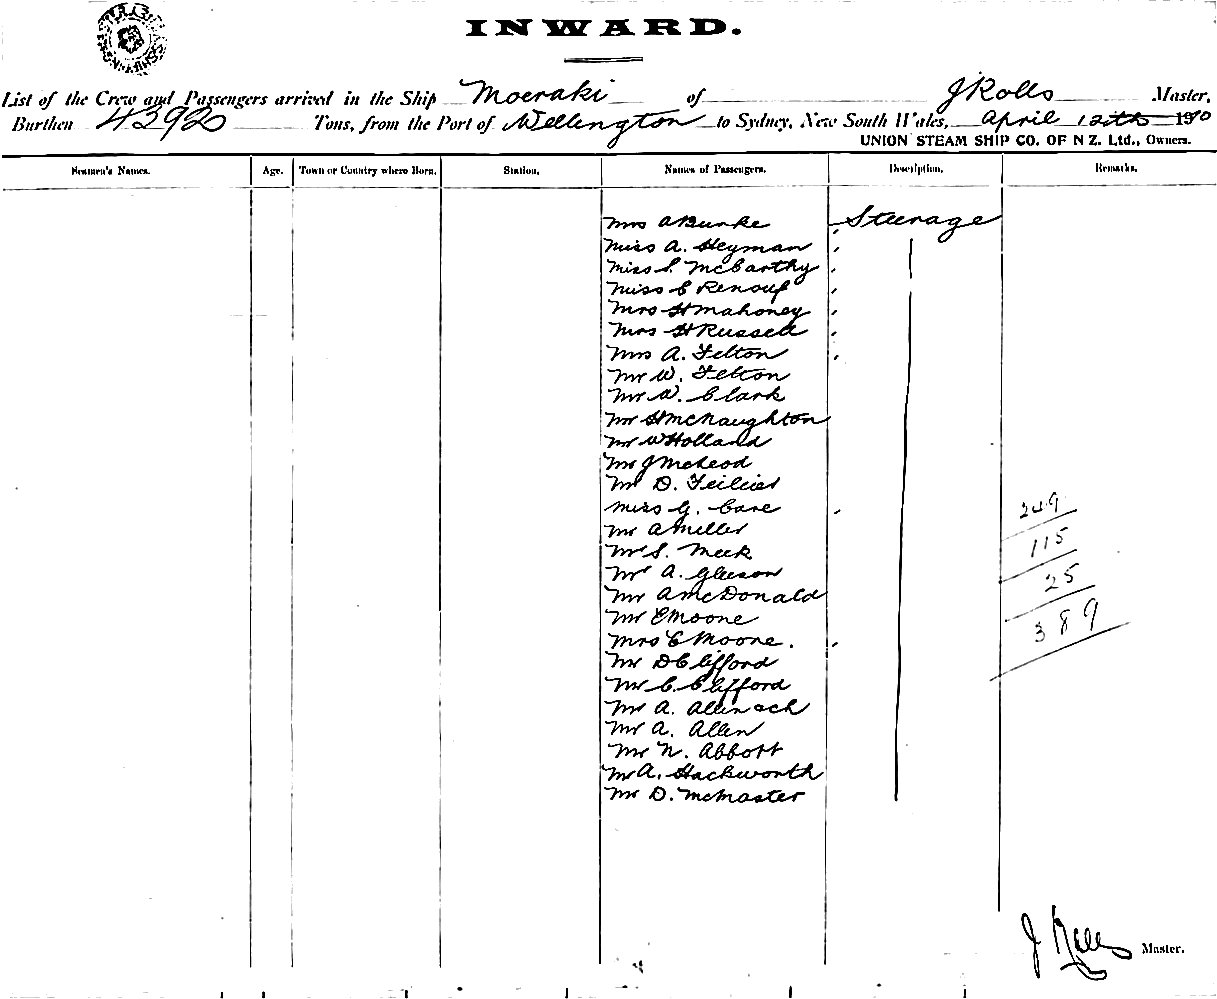 INWARD.
List of the Crew and Passengers arrived in the Ship Moeraki of J Rolls Master,
Burthen 43920 Tons, from the Port of Wellington to Sydney, New South Wales, April 12th 1910
UNION STEAM SHIP CO. OF N Z. Ltd., Owners.
Seamen's Names. Age. Town or Country where Born. Station. Names of Passengers. Description. Remarks.
Mrs A Burke Steerage
Miss A. Heyman
Miss S. McCarthy
Miss C Renouf
Mrs H Mahoney
Mrs H Russell
Mrs A. Felton
Mr W. Felton
Mr W. Clark
Mr H McNaughton
Mr W Holland
Mr J McLeod
Mr D.
Miss G. Cave
249
Mr A Miller
115
Mr S. Meek
Mr A. Gleeson
25
Mr A McDonald
Mr E Moone
389
Mrs E Moone.
Mr D Clifford
Mr C. Clifford
Mr A. Allenach
Mr A. Allen
Mr N. Abbott
Mr A. Hackworth
Mr D. McMaster
J Rolls Master.